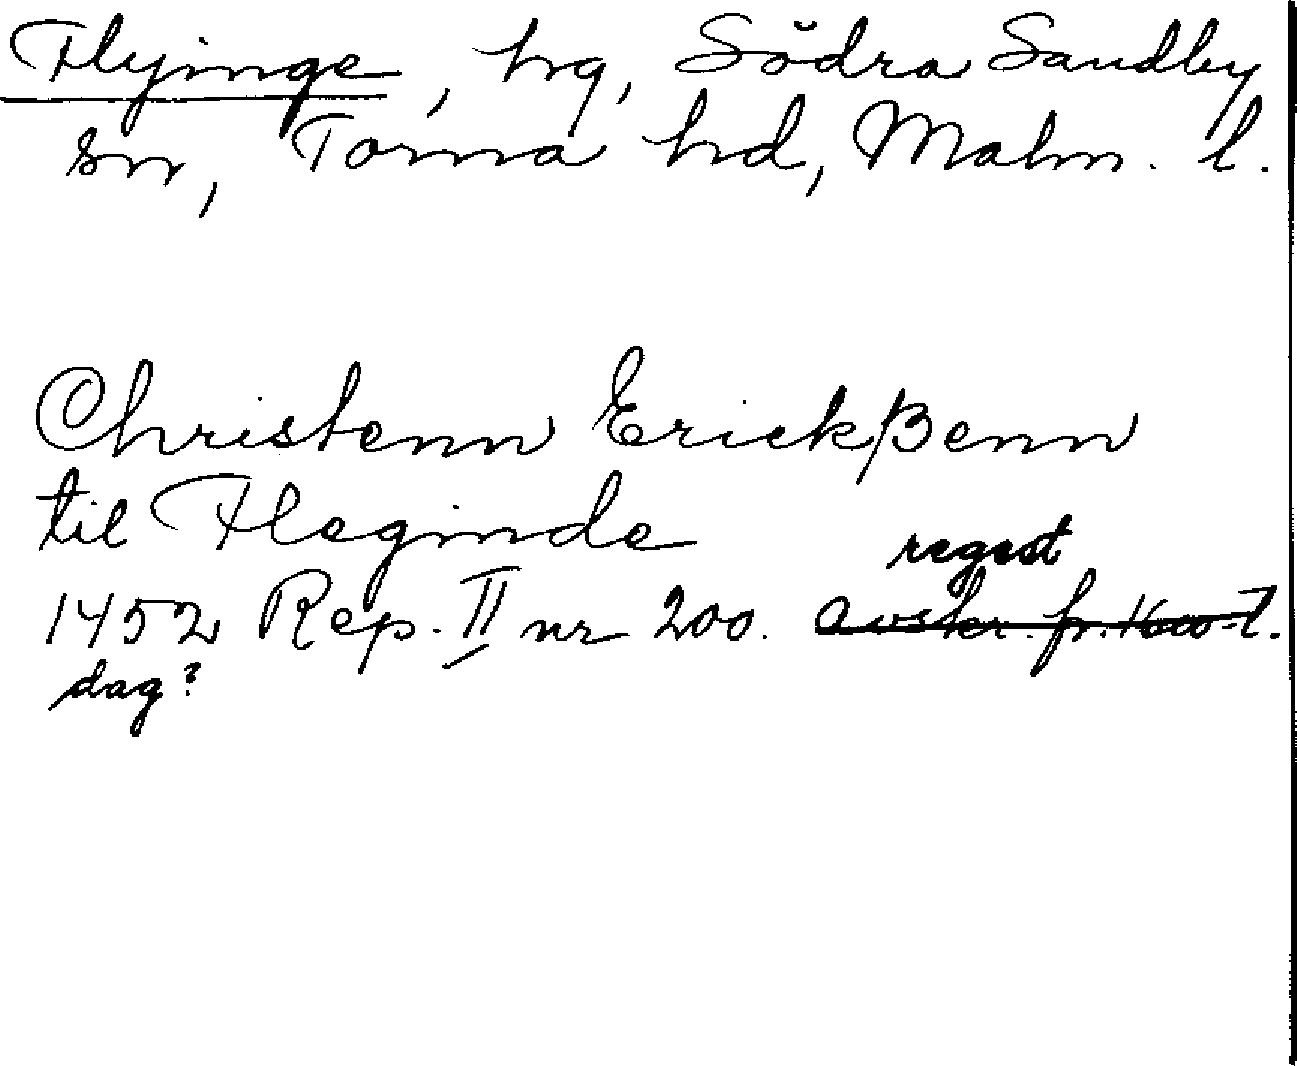 Flyinge, hg, Södra Sandby
sn, Torna hd, Malm. l.
Christenn Erickßenn
til Fleginde
regest
1452 Rep. II nr 200. avskr. fr. 1600-t.
dag?